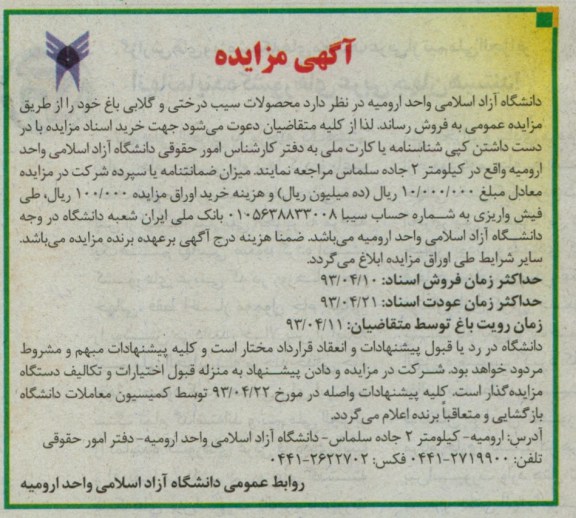 آگهی مزایده
دانشگاه آزاد اسلامی واحد ارومیه در نظر دارد محصولات سیب درختی و گلابی باغ خود را از طریق
مزایده عمومی به فروش رساند. لذا از کلیه متقاضیان دعوت می‌شود جهت خرید اسناد مزایده با در
دست داشتن کپی شناسنامه یا کارت ملی به دفتر کارشناس امور حقوقی دانشگاه آزاد اسلامی واحد
ارومیه واقع در کیلومتر ۲ جاده سلماس مراجعه نمایند. میزان ضمانتنامه یا سپرده شرکت در مزایده
معادل مبلغ ۱۰/۰۰۰/۰۰۰ ریال (ده میلیون ریال) و هزینه خرید اوراق مزایده ۱۰۰/۰۰۰ ریال، طی
فیش واریزی به شماره حساب سیبا ۰۱۰۵۶۳۸۸۳۳۰۰۸ بانک ملی ایران شعبه دانشگاه در وجه
دانشگاه آزاد اسلامی واحد ارومیه می‌باشد. ضمنا هزینه درج آگهی برعهده برنده مزایده می‌باشد.
سایر شرایط طی اوراق مزایده ابلاغ می‌گردد.
حداکثر زمان فروش اسناد: ۹۳/۰۴/۱۰
حداکثر زمان عودت اسناد: ۹۳/۰۴/۲۱
زمان رویت باغ توسط متقاضیان: ۹۳/۰۴/۱۱
دانشگاه در رد یا قبول پیشنهادات و انعقاد قرارداد مختار است و کلیه پیشنهادات مبهم و مشروط
مردود خواهد بود. شرکت در مزایده و دادن پیشنهاد به منزله قبول اختیارات و تکالیف دستگاه
مزایده‌گذار است. کلیه پیشنهادات واصله در مورخ ۹۳/۰۴/۲۲ توسط کمیسیون معاملات دانشگاه
بازگشایی و متعاقباً برنده اعلام می‌گردد.
آدرس: ارومیه- کیلومتر ۲ جاده سلماس- دانشگاه آزاد اسلامی واحد ارومیه-دفتر امور حقوقی
تلفن: ۲۷۱۹۹۰۰-۰۴۴۱ فکس: ۲۶۲۲۷۰۲-۰۴۴۱
روابط عمومی دانشگاه آزاد اسلامی واحد ارومیه